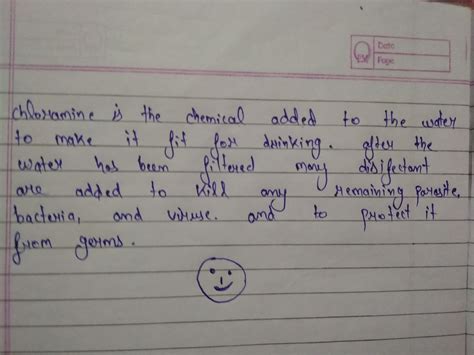 Date
Page
chloramine is the chemical added to the water
to make it fit for drinking. after the
water has been filtered many disifectant
are added to kill any remaining parasite,
bacteria, and viruse. and to protect it
from germs.